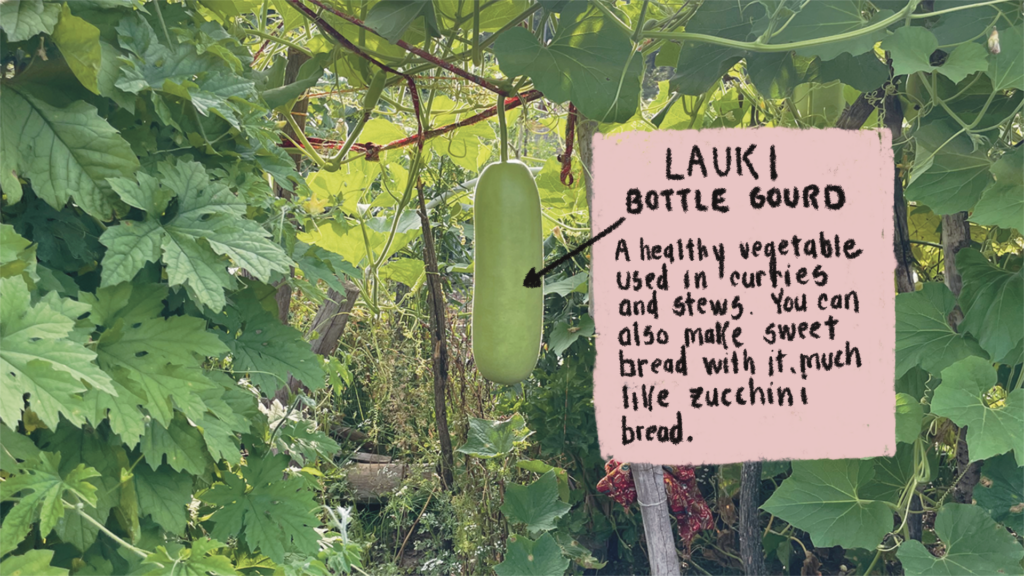 LAUKI
BOTTLE GOURD
A healthy vegetable
used in curries
and stews. You can
also make sweet
bread with it, much
like zucchini
bread.